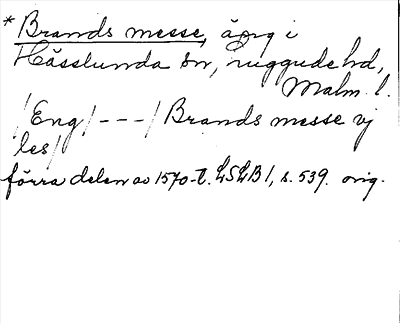 * Brands messe, äng i
Hässlunda sn, Luggude hd,
Malm. l.
/Eng/ - - - / Brands messe vj
les/
förra delen av 1570-t. LSLB 1, s. 539. orig.